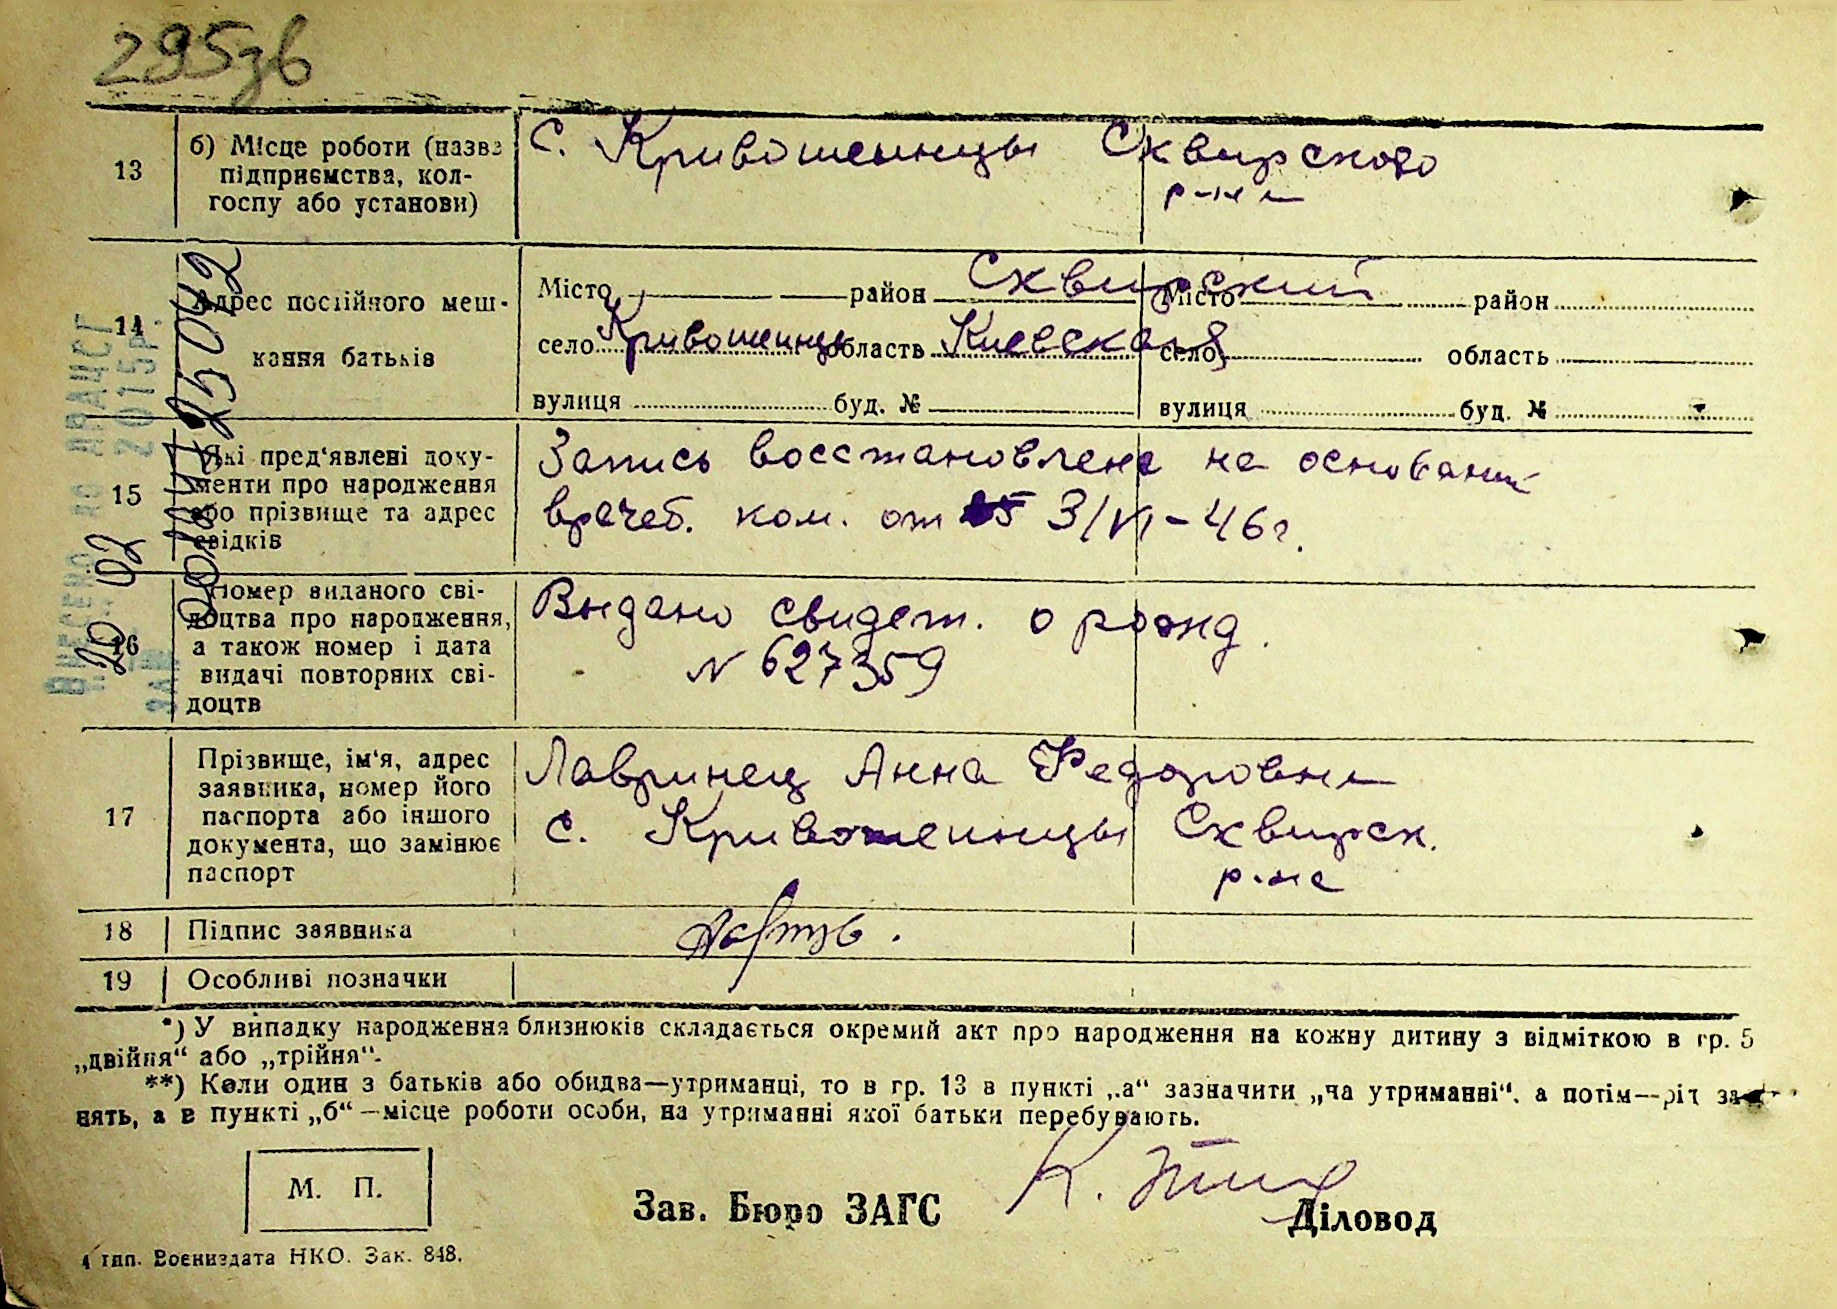 295зв
13
б) Місце роботи (назва
підприємства, кол-
госпу або установи)
с. Кривошеинцы Сквирского
р-на
14
Адрес постійного меш-
кання батьків
Місто район Сквирский Місто район
село Кривошеинцы область Киевская село область
вулиця буд. № вулиця буд. №
15
Які пред'явлені доку-
менти про народження
або прізвище та адрес
свідків
Запись восстановлена на основании
врачеб. ком. от 3/VI-46г.
16
Номер виданого сві-
доцтва про народження,
а також номер і дата
видачі повторних сві-
доцтв
Выдано свидет. о рожд.
N 627359
17
Прізвище, ім'я, адрес
заявника, номер його
паспорта або іншого
документа, що замінює
паспорт
Лавринец Анна Федоровна
с. Кривошеинцы Сквирск.
р-на
18
Підпис заявника
19
Особливі позначки
ВНЕСЕНО ДО ДРАЦСГ
20 02 2015р.
*) У випадку народження близнюків складається окремий акт про народження на кожну дитину з відміткою в гр. 5
„двійня“ або „трійня“.
**) Коли один з батьків або обидва—утриманці, то в гр. 13 в пункті „а“ зазначити „на утриманні“, а потім—рід заня-
нять, а в пункті „б“—місце роботи особи, на утриманні якої батьки перебувають.
М. П.
Зав. Бюро ЗАГС
Діловод
4 тип. Воениздата НКО. Зак. 848.